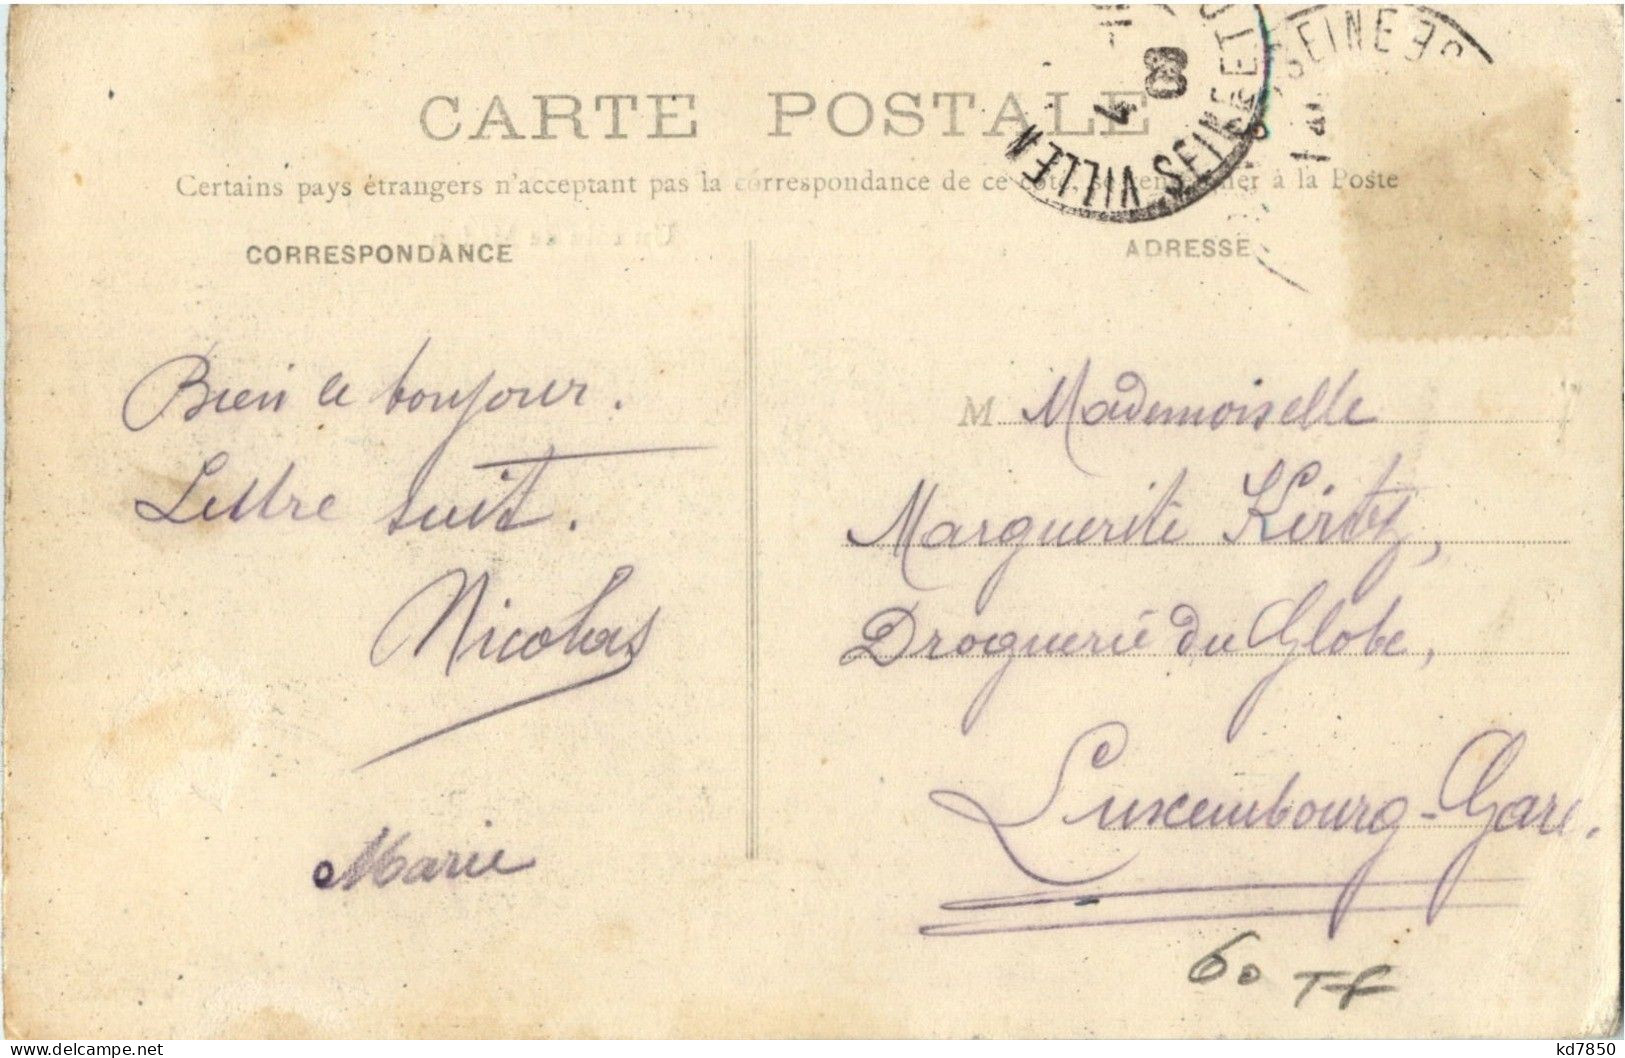 CARTE POSTALE
Certains pays étrangers n'acceptant pas la correspondance de ce côté, se renseigner à la Poste
CORRESPONDANCE
ADRESSE
SEINE ET
08
SEINE
Bien le bonjour.
Lettre suit.
Nicolas
Marie
M Mademoiselle
Marguerite Kirtz,
Droguerie du Globe,
Luxembourg-Gare.
60
kd7850